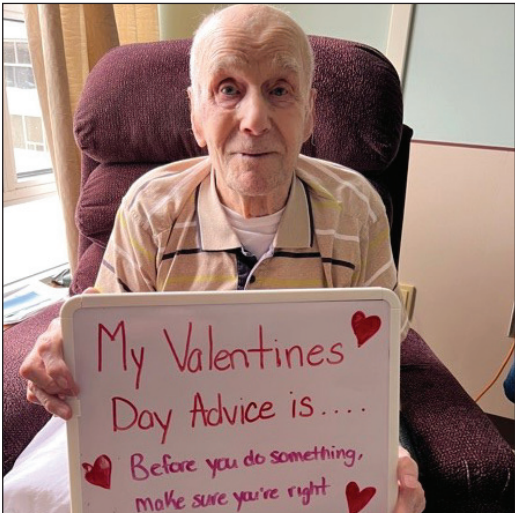 My Valentines
Day Advice is....
Before you do something,
make sure you're right